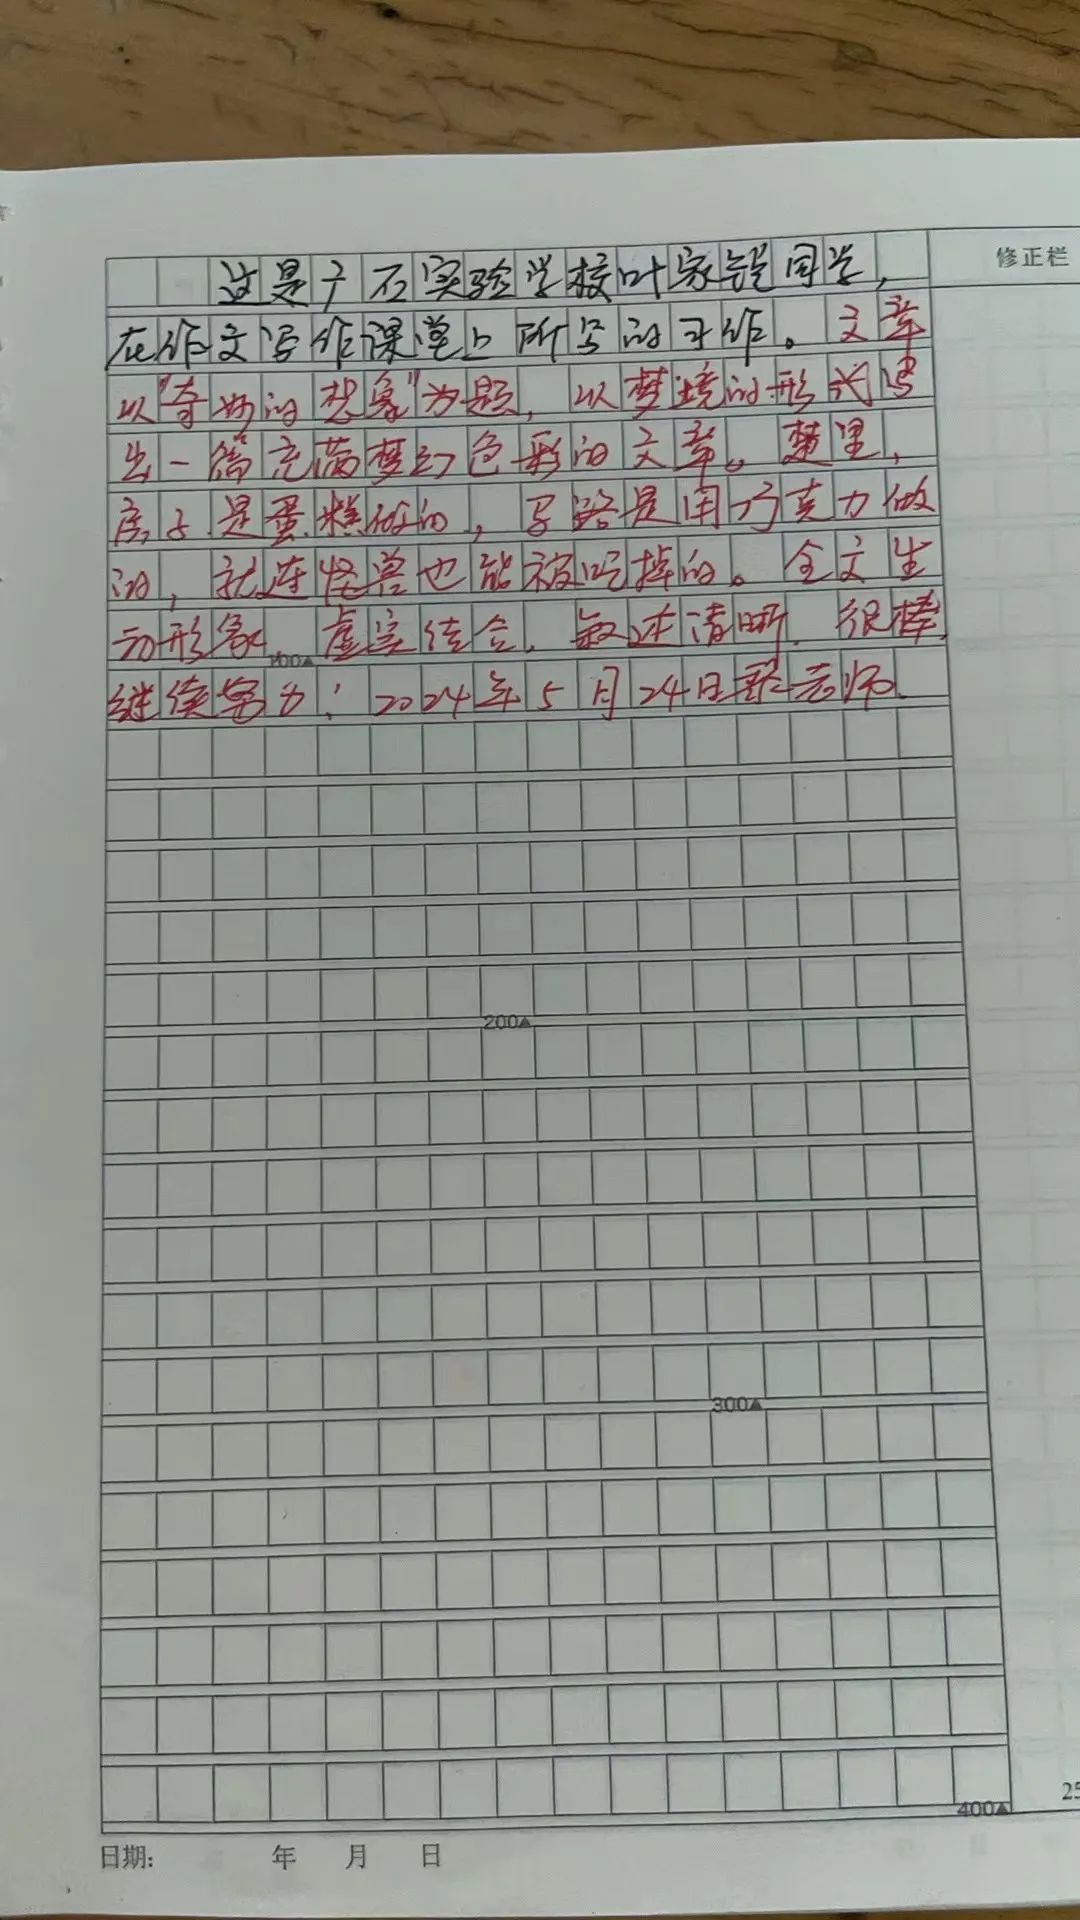 修正栏
这是于石实验学校叶家铠同学，
在作文写作课堂上所写的习作。文章
以“奇妙的想象”为题，以梦境的形式写
出一篇充满梦幻色彩的文章。梦里，
房子是蛋糕做的，马路是用巧克力做
的，就连怪兽也能被吃掉的。全文生
动形象、虚实结合，叙述清晰，很棒，
100▲
继续努力！2024年5月24日 老师
200▲
300▲
400▲
25
日期： 年 月 日